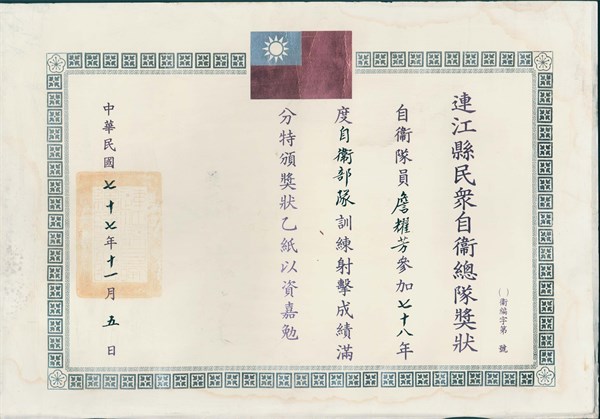 連江縣民眾自衞總隊獎狀
( )衞編字第 號
自衞隊員詹耀芳參加七十八年
度自衞部隊訓練射擊成績滿
分特頒獎狀乙紙以資嘉勉
中華民國七十七年十一月五日